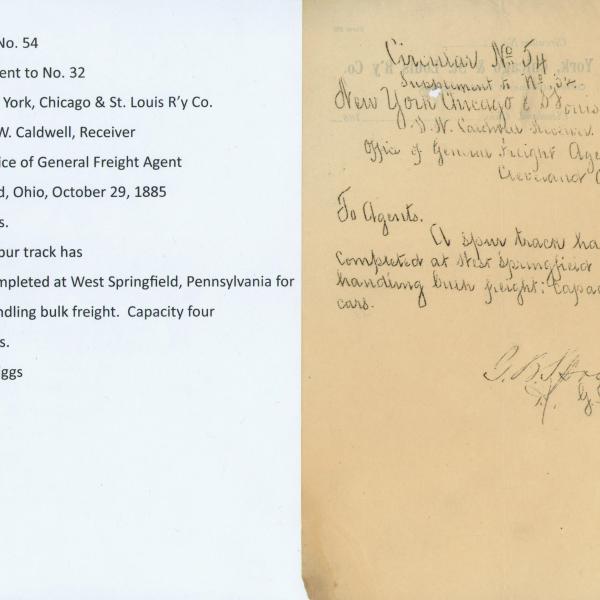 No. 54
ent to No. 32
York, Chicago & St. Louis R'y Co.
W. Caldwell, Receiver
ice of General Freight Agent
d, Ohio, October 29, 1885
s.
pur track has
mpleted at West Springfield, Pennsylvania for
ndling bulk freight.  Capacity four
s.
ggs
Circular No 54
Supplement to No. 32
New York Chicago & St Louis
D. W. Caldwell Receiver
Office of General Freight Age
Cleveland O
To Agents.
A spur track ha
completed at West Springfield
handling bulk freight: Capac
cars.